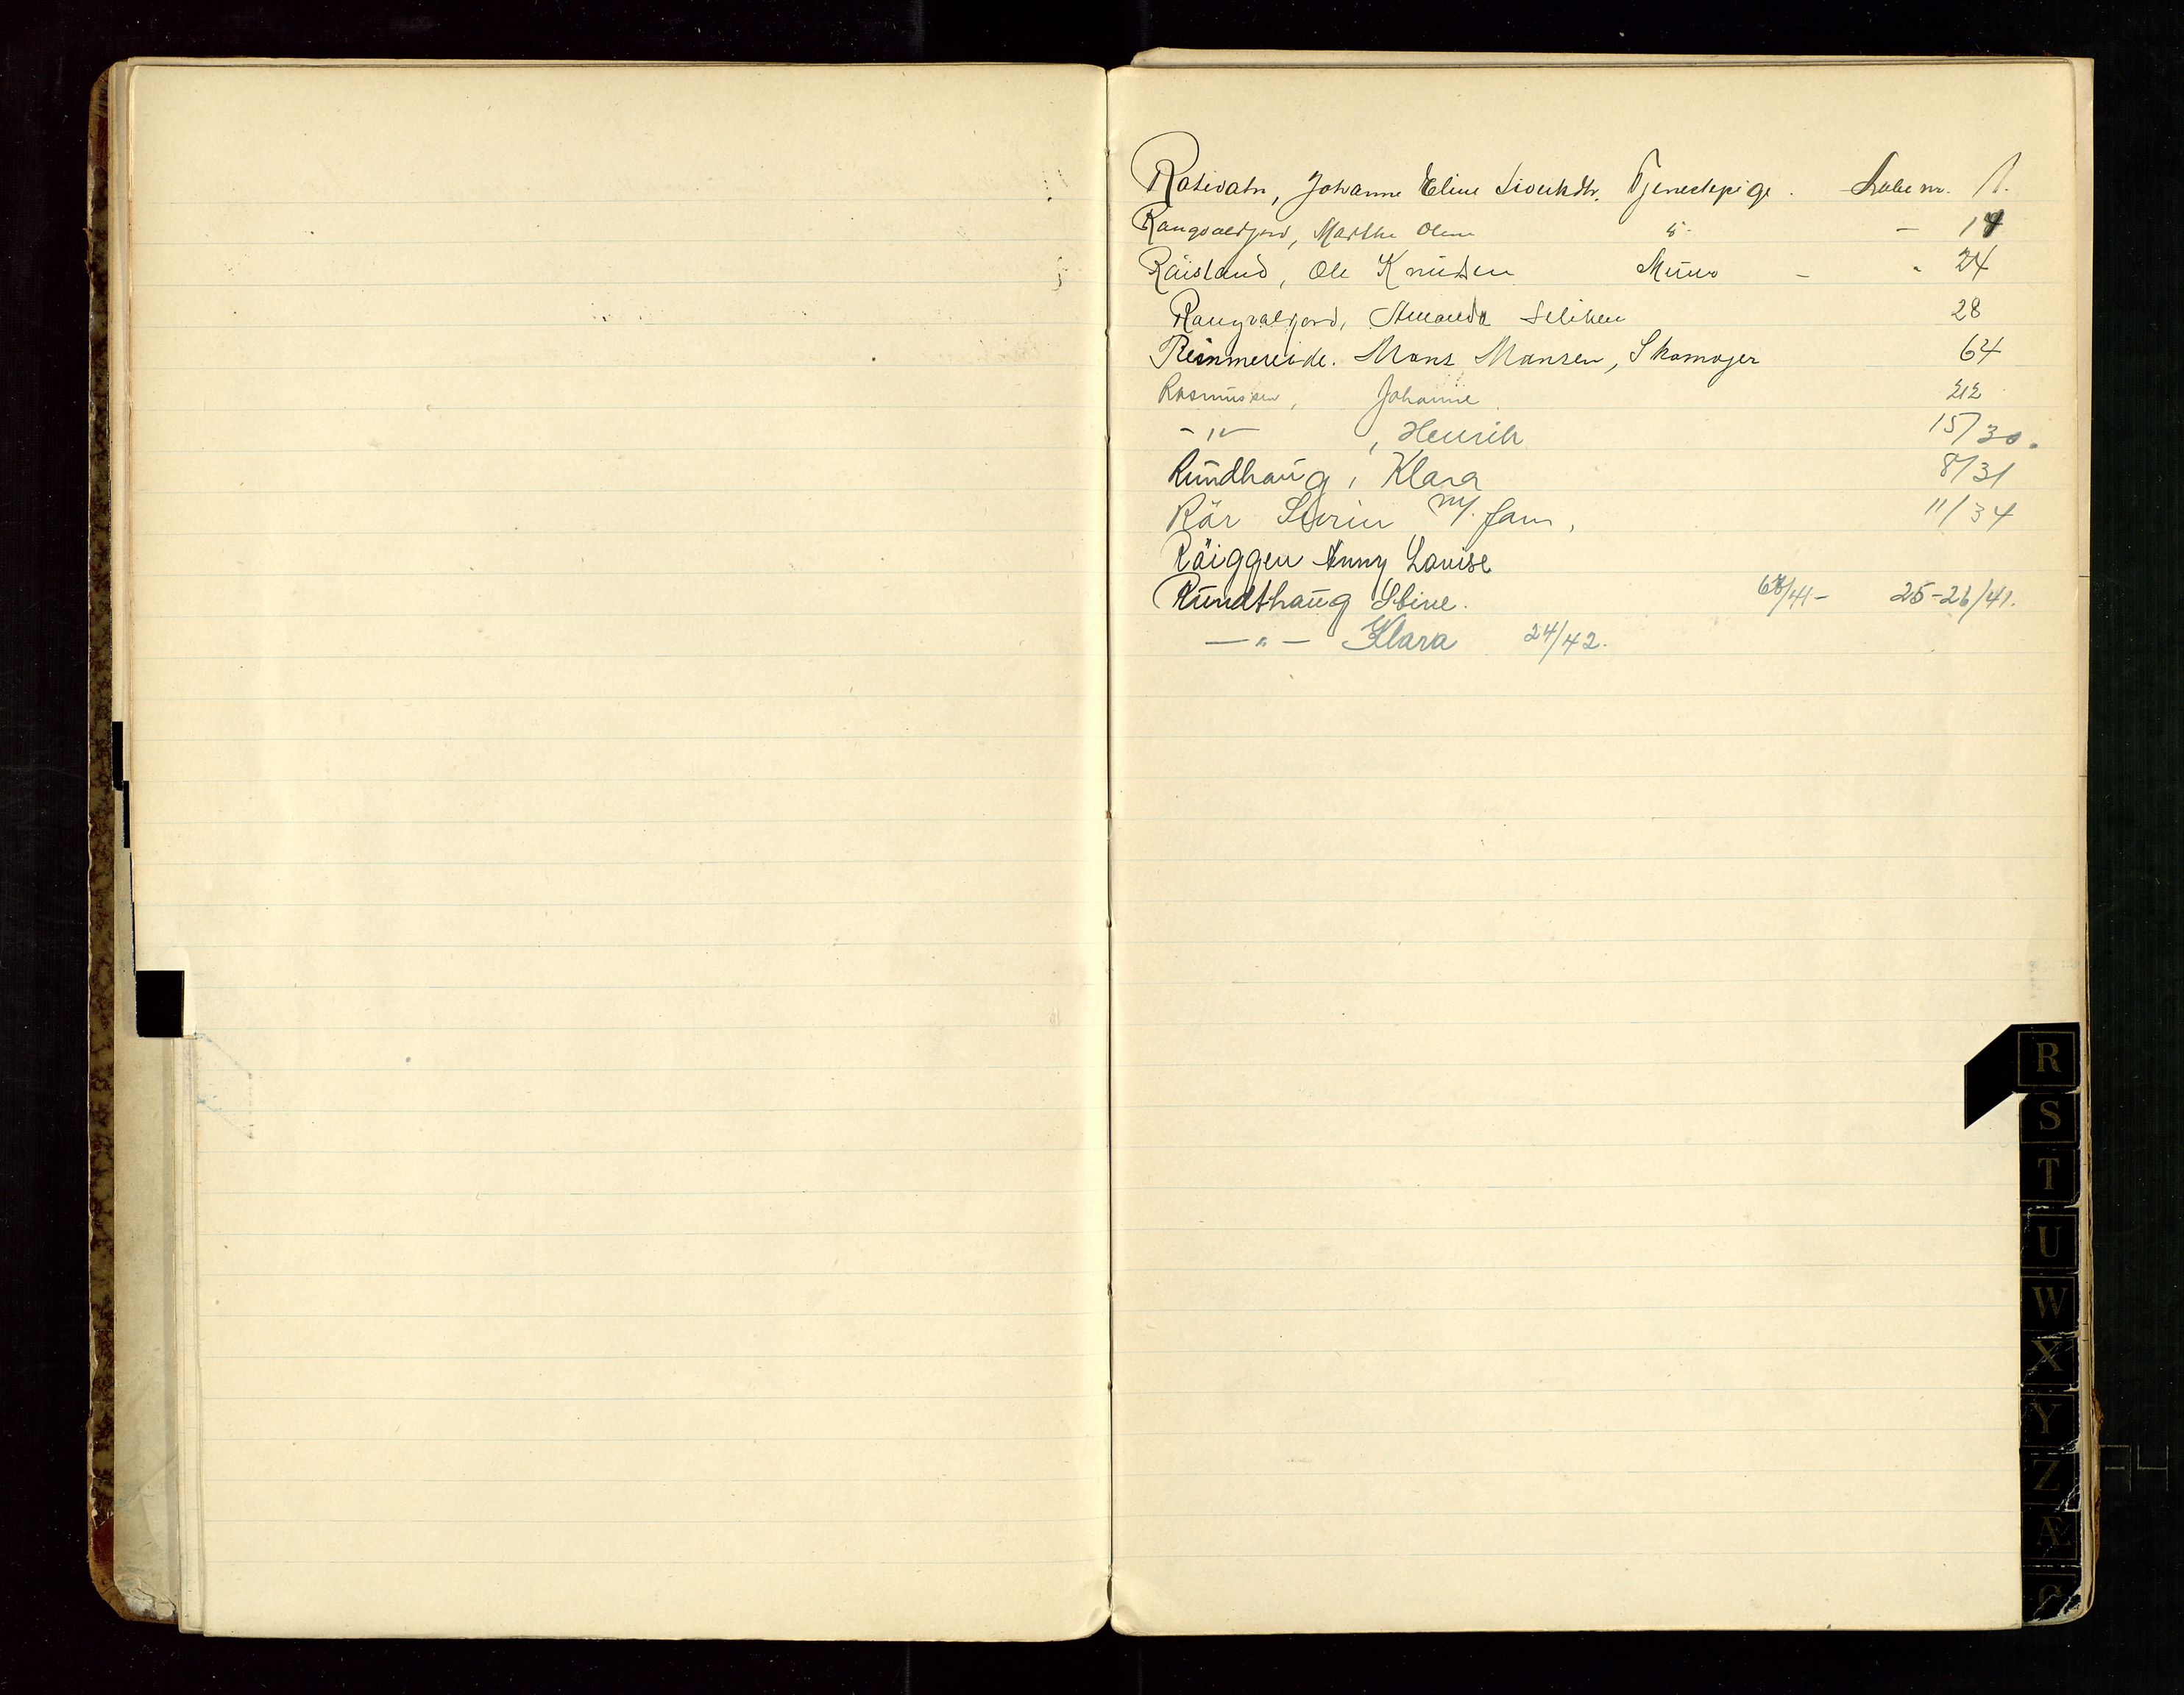 Rativatn, Johanne Eline Siverthdtr. Tjenestepige. Løbe nr. 1.
Rangvaldjord, Marthe Olena " - 14
Räisland, Ole Knudsen Murer - " 24
Rangvaldjord, Amanda 28
Reinmereide. Mons Monsen, Skomager 64
Rasmussen, Johanne 212
- " - , Henrik 15/30.
Rundhaug, Klara 8/31
Rör Sverin m/ fam. 11/34
Räiggen Anny Lovise
Rundthaug Stine. 68/41 - 25-26/41.
— " — Klara 24/42.
R
S
T
U
W
X
Y
Z
Æ